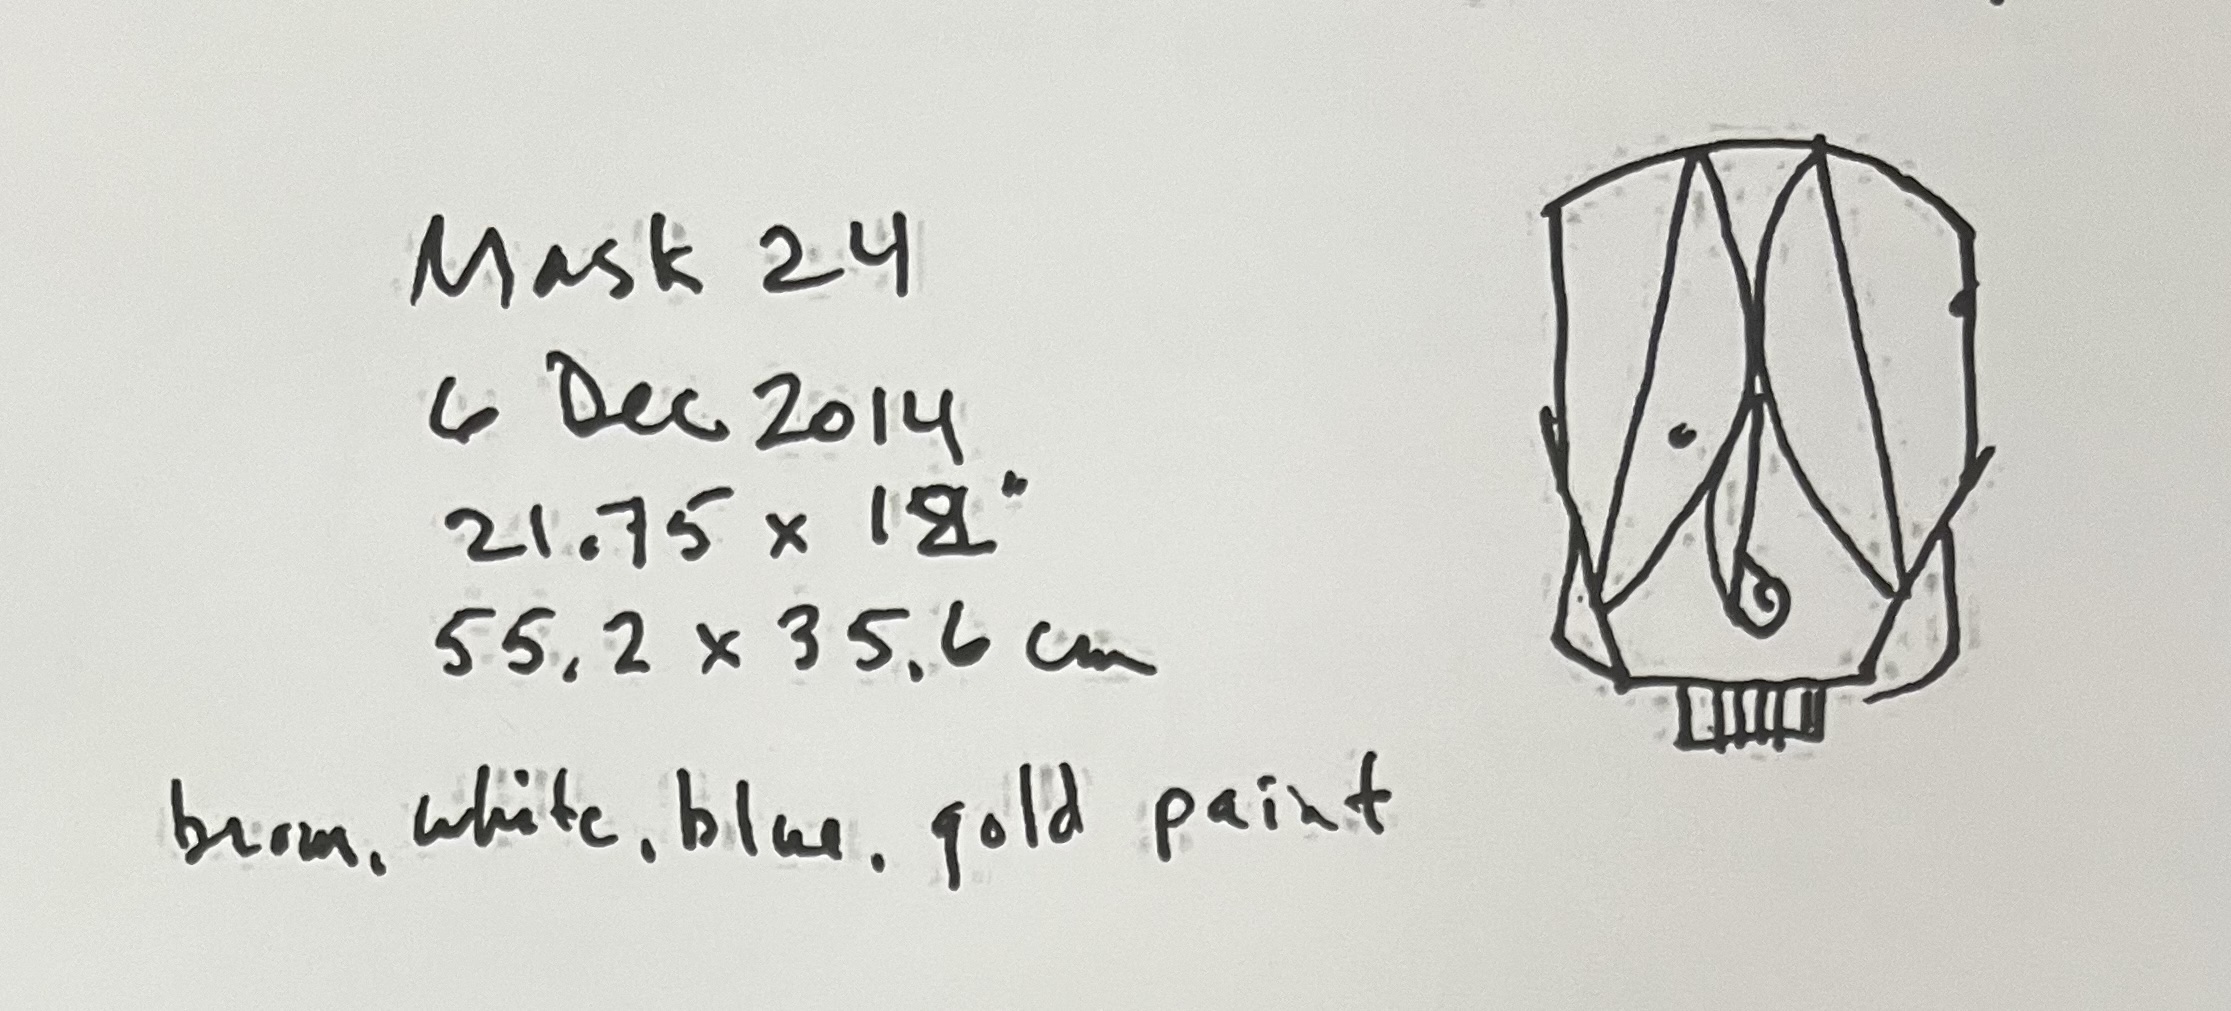 Mask 24
6 Dec 2014
21.75 x "
55.2 x 35.6 cm
brown, white, blue, gold paint